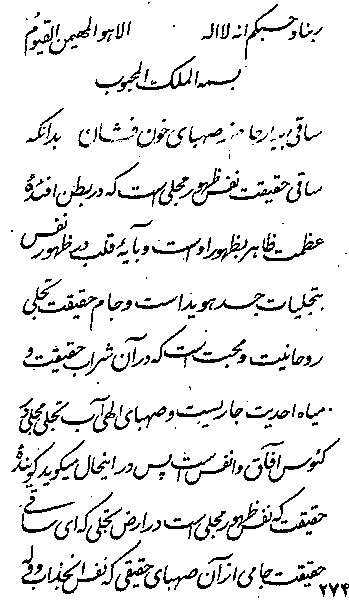 ربنا و حسبکم انه لا اله الا هو المهیمن القیوم
بسمه الملک المحبوب
ساقی بیار جامی ز صهبای خون فشان بدانکه
ساقی حقیقت نفس ظهور مجلی است که در بطن افئدهٔ
عظمت ظاهر بظهور او است و بآیهٔ قلب در ظهور نفس
بتجلیات جسد هویدا است و جام حقیقت تجلی
روحانیت و محبت است که در آن شراب حقیقت و
میاه احدیت جاریست و صهبای الهی آب تجلی مجلی در
کئوس آفاق و انفس است پس در اینحال میگوید گویندهٔ
حقیقت که نفس ظهور مجلی است در ارض تجلی که ای ساقی
حقیقت جامی از آن صهبای حقیقی که نفس انجذاب و وله
۲۷۴